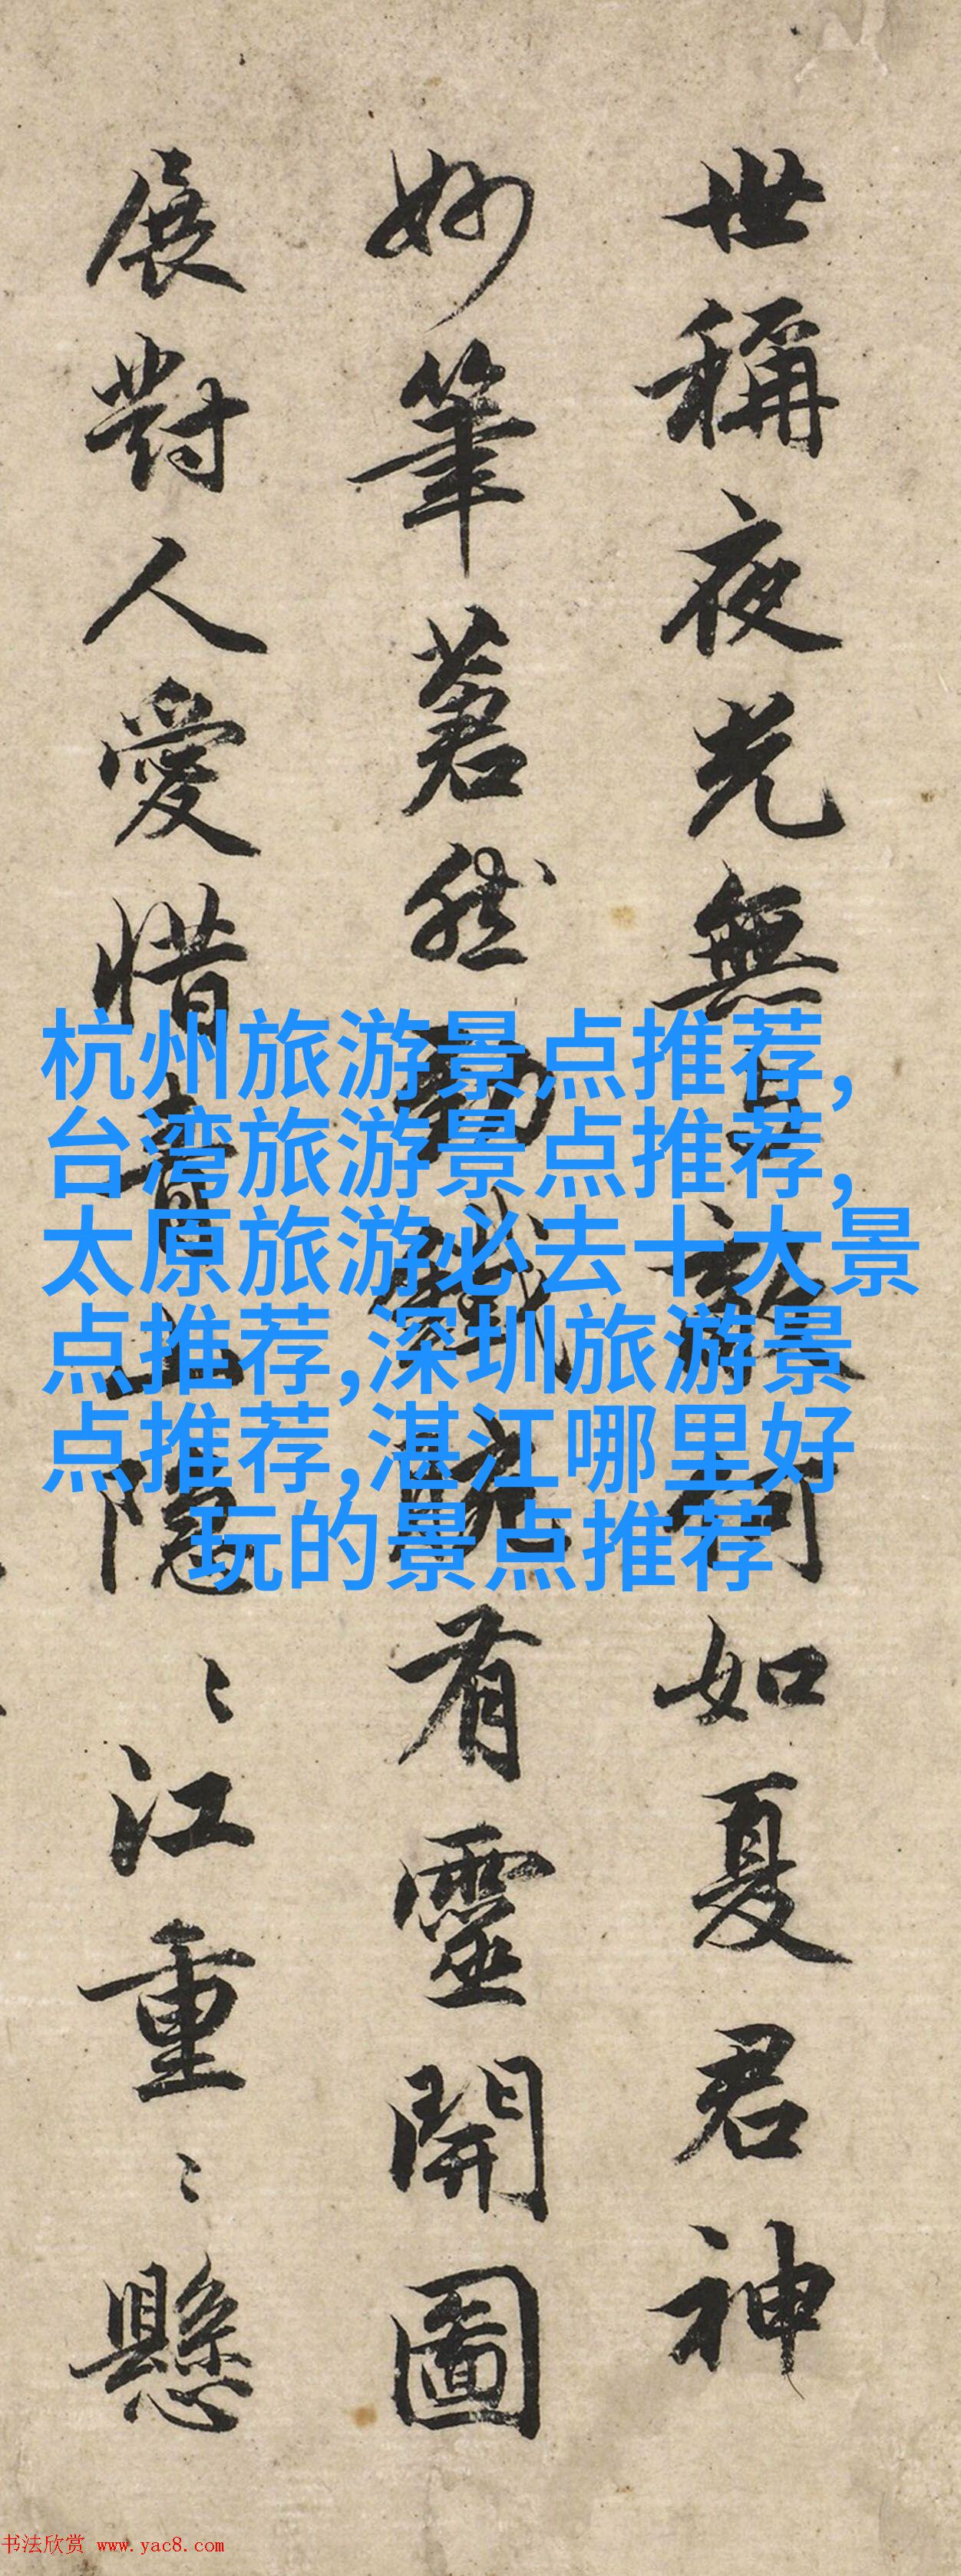 世稱夜光無敵何如夏君神
妙筆著然有靈開圖
展對人愛惜青山隱〻江重〻懸
杭州旅游景点推荐,
台湾旅游景点推荐,
太原旅游必去十大景
点推荐,深圳旅游景
点推荐,湛江哪里好
玩的景点推荐
书法欣赏 www.yac8.com